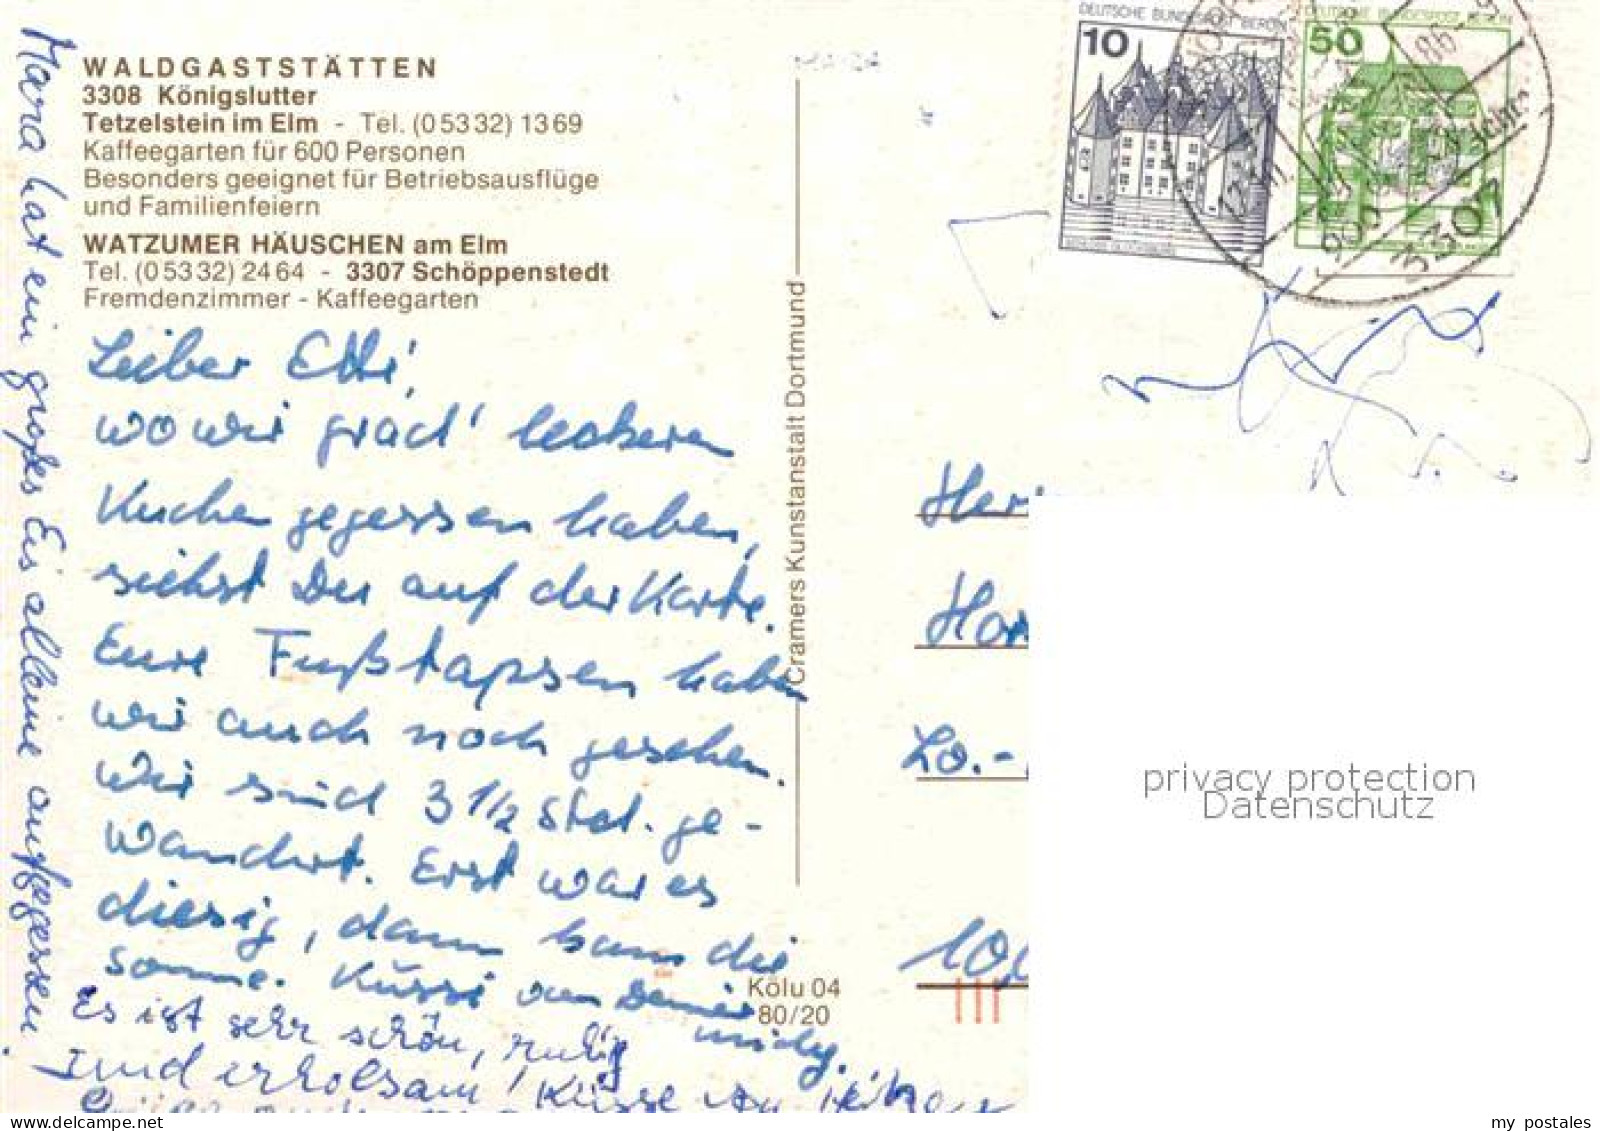 WALDGASTSTÄTTEN
3308 Königslutter
Tetzelstein im Elm - Tel. (0 53 32) 13 69
Kaffeegarten für 600 Personen
Besonders geeignet für Betriebsausflüge
und Familienfeiern
WATZUMER HÄUSCHEN am Elm
Tel. (0 53 32) 24 64 - 3307 Schöppenstedt
Fremdenzimmer - Kaffeegarten
Lieber Etti,
wo wir grad' leckeren
Kuchen gegessen haben,
siehst Du auf der Karte.
Eure Fußstapsen haben
wir auch noch gesehen.
Wir sind 3 1/2 Std. ge-
wandert. Erst war es
diesig, dann kam die
Sonne. Küssi von Deiner
Es ist sehr schön, ruhig
und erholsam! Küsse
Mara hat ein großes Eis alleine aufgegessen.
Cramers Kunstanstalt Dortmund
Kölu 04
80/20
DEUTSCHE BUNDESPOST BERLIN
10
DEUTSCHE BUNDESPOST BERLIN
50
3307
Her
Lo.-
privacy protection
Datenschutz
my postales